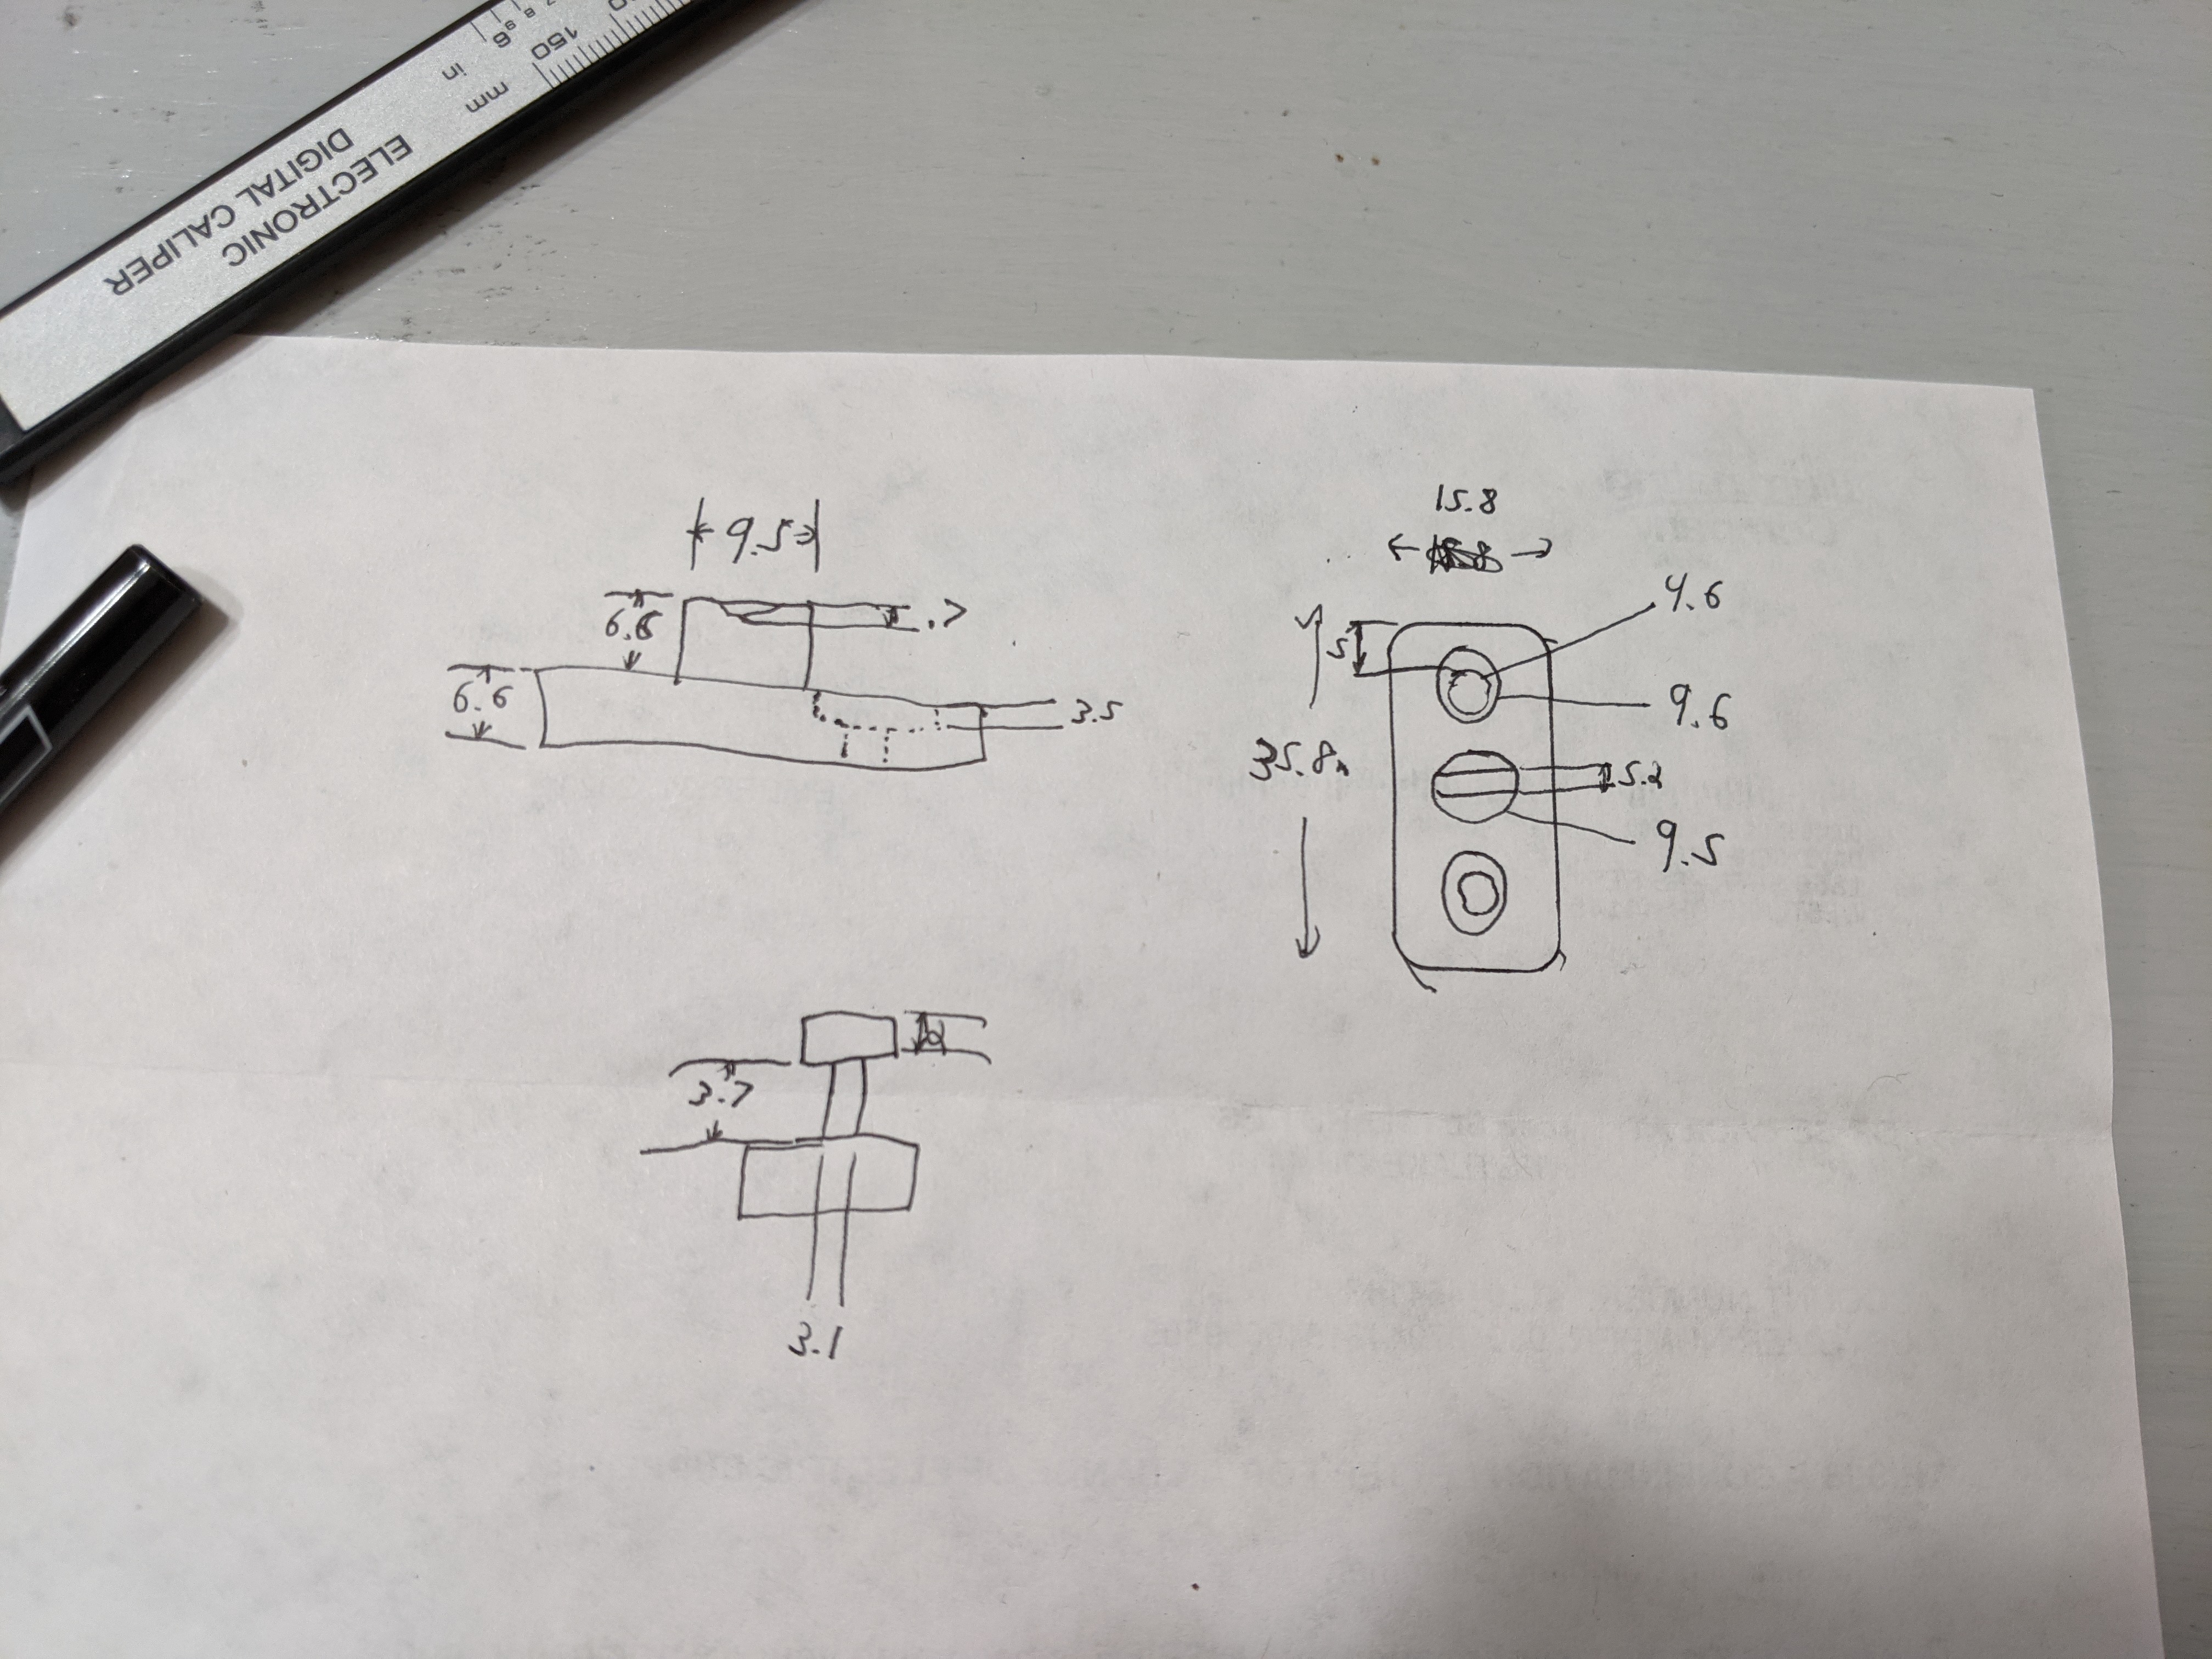 ELECTRONIC
DIGITAL CALIPER
mm
150
in
6
9.5
6.6
.7
6.6
3.5
15.8
4.6
5
9.6
35.8
5.2
9.5
2
3.7
3.1